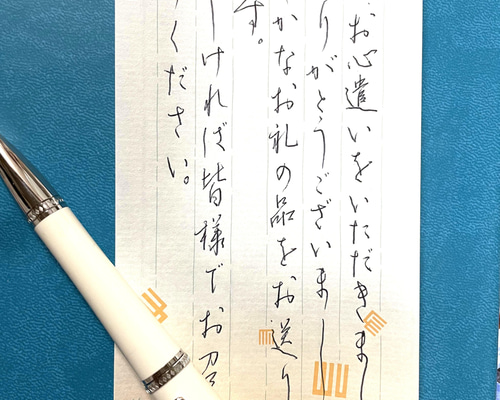 お心遣いをいただきまし
りがとうございまし
かなお礼の品をお送り
す。
ければ皆様でお召
ください。